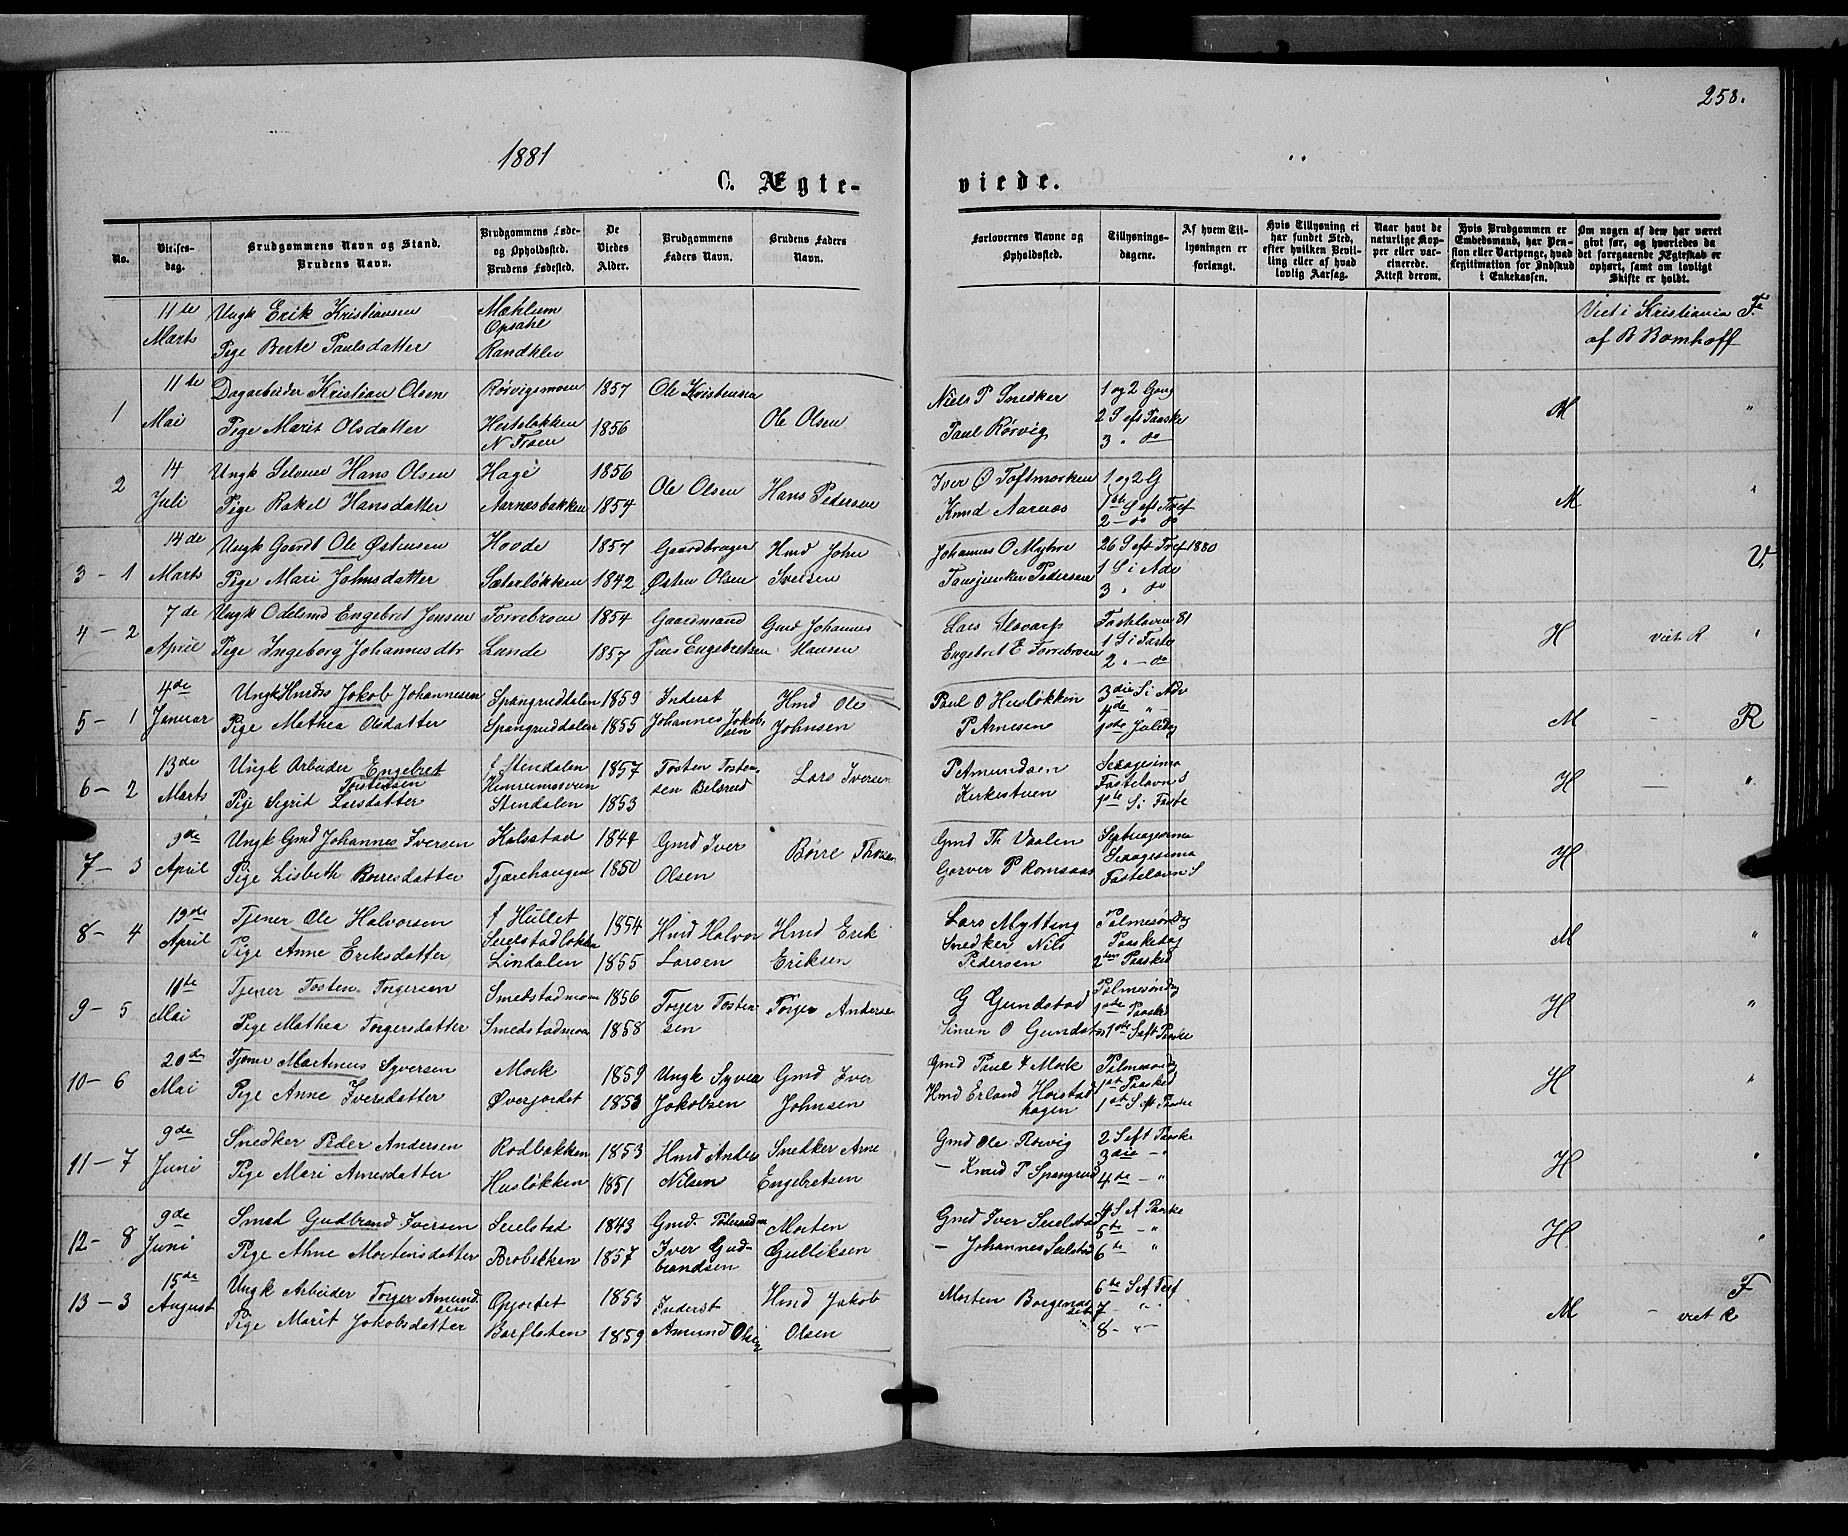 258.
1881
C. Ægte-
viede.
No.
Vielses-
dag.
Brudgommens Navn og Stand.
Brudens Navn.
Brudgommens Føde-
og Opholdssted.
Brudens Fødested.
De
Viedes
Alder.
Brudgommens
Faders Navn.
Brudens Faders
Navn.
Forlovernes Navne og
Opholdssted.
Tillysnings-
dagene.
Af hvem Til-
lysningen er
forlangt.
Hvis Tillysning ei
har fundet Sted,
efter hvilken Bevil-
ling eller af hvad
lovlig Aarsag.
Naar havt de
naturlige Kop-
per eller vac-
cinerede.
Attest derom.
Hvis Brudgommen er
Embedsmand, har Pen-
sion eller Vartpenge, hvad
Legitimation for Indskud
i Enkekassen.
Om nogen af dem har været
givt før, og hvorledes da
det foregaaende Ægteskab er
ophørt, samt om lovligt
Skifte er holdt.
11te Marts
Ungk Erik Kristiansen
Pige Berte Paulsdatter
Mæhlum
Opsahl
Randklev
Viet i Kristiania F
af B Bomhoff
1
11te Mai
Dagarbeider Kristian Olsen
Pige Marit Olsdatter
Rörvigsmoen
Hesteløkken
N Troen
1857
1856
Ole Kristensen
Ole Olsen
Niels P Snedker
Paul Rörvig
1 og 2 Gang
2 S eft Paaske
3 " do
M "
2
14 Juli
Ungk Selveier Hans Olsen
Pige Rakel Hansdatter
Hage
Aarnesbakken
1856
1854
Ole Olsen
Hans Pedersen
Iver O Toftmorken
Knud Aarnæs
1 og 2 G
1ste S eft Tref
2 - do do
M "
3 - 1
14de Marts
Ungk Gaardb Ole Østensen
Pige Mari Johnsdatter
Hovde
Sæterløkken
1857
1842
Gaardbruger
Østen Olsen
Hmd John
Svelsen
Johannes O Myhre
Pedersen
26 S eft Tref 1880
1 S i Adv
3 " do
V,
4 - 2
7de April
Ungk Odelsmd Engebret Jensen
Pige Ingeborg Johannesdtr
Forrebroen
Lunde
1854
1857
Gaardmand
Jens Engebretsen
Gmd Johannes
Hansen
Lars Ulvarp
Engebret E Forrebroen
Fastelavn 81
1 S i Faste
2 " - do
H viet R "
5 - 1
4de Januar
Ungk Hmds Jakob Johannesen
Pige Mathea Olsdatter
Spangruddalen
Spangruddalen
1859
1855
Inderst
Johannes Jakob-
sen
Hmd Ole
Johnsen
Paul O Husløkken
P Arnesen
3die S i Adv
4de "
1ste Juledag
M - R
6 - 2
13de Marts
Ungk Arbeider Engebret
Tostensen
Pige Sigrid Larsdatter
f Stendalen
Stendalen
1857
1853
Tosten Tosten-
sen Belsrud
Lars Iversen
P Amundsen
Kirkestuen
Sexagesima
Fastelavn S
1ste S i Faste
H - "
7 - 3
9de April
Ungk Gmd Johannes Iversen
Pige Lisbeth Börresdatter
Kalsstad
Tjærehaugen
1844
1850
Gmd Iver
Olsen
Börre Thosen
Gmd Th Vaalen
Garver P Romsaas
Septuagesima
Sexagesima
Fastelavn S
H
8 - 4
19de April
Tjener Ole Halvorsen
Pige Anne Eriksdatter
f Hullet
Seielstadløkken
Lindalen
1854
1855
Hmd Halvor
Larsen
Hmd Erik
Eriksen
Lars Mytting
Snedker Nils
Pedersen
Palmesöndag
Paaskedag
2den Paasked
M "
9 - 5
11te Mai
Tjener Tosten Torgersen
Pige Mathea Torgersdatter
Smedstadmoen
Smedstadmoen
1856
1858
Torger Tosten-
sen
Torger Andersen
G Gundstad
Simen O Gundstad
Palmesöndag
1ste Paaske
1ste S eft Paaske
H "
10 - 6
20de Mai
Tjener Martinus Syversen
Pige Anne Iversdatter
Moek
Øverjordet
1859
1853
Ungk Syver
Jakobsen
Gmd Iver
Johnsen
Gmd Paul F Moek
Hmd Erland Horstad
hagen
Palmesöndag
1ste Paasked
1ste S eft Paaske
H "
11 - 7
9de Juni
Snedker Peder Andersen
Pige Mari Arnesdatter
Rodbakken
Husløkken
1853
1851
Hmd Anders
Nilsen
Snedker Arne
Engebretsen
Gmd Ole Rörvig
- Knud P Spangrud
2 S eft Paaske
3die - "
4de - "
H "
12 - 8
9de Juni
Smed Gudbrand Iversen
Pige Anne Mortensdatter
Seielstad
Brobekken
1843
1857
Gmd.
Iver Gud-
brandsen
Morten
Gulliksen
Gmd Iver Seielstad
- Johannes Seielstad
4 S ef Paaske
5te - "
6te "
H. "
13 - 3
15de August
Ungk Arbeider Torger Amund-
sen
Pige Marit Jakobsdatter
Opjordet
Barflaten
1853
1859
Inderst
Amund Olsen
Hmd Jakob
Olsen
Morten Borgenæs-
6te S ef Tref
7 - "
8 - " -
M - viet R
F